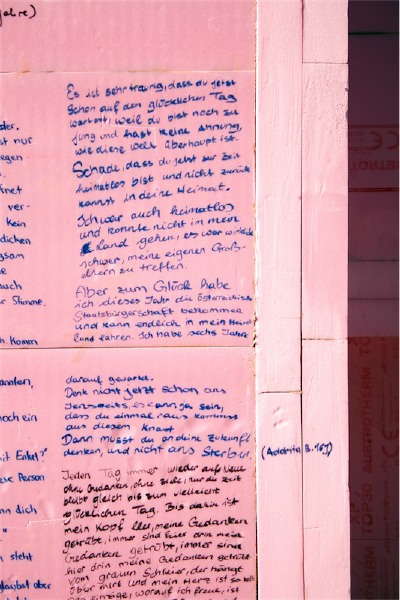 Jahre)
Es ist sehr traurig, dass du jetzt
schon auf den glücklichen Tag
wartest, weil du bist noch zu
jung und hast keine Ahnung,
wie diese Welt überhaupt ist.
Schade, dass du jetzt zur Zeit
heimatlos bist und nicht zurück
kannst in deine Heimat.
Ich war auch heimatlos
und konnte nicht in mein
Land gehen, es war wirklich
schwer, meine eigenen Groß-
eltern zu treffen.
Aber zum Glück habe
ich dieses Jahr die österreichische
Staatsbürgerschaft bekommen
und kann endlich in mein Heimat
land fahren. Ich habe sechs Jahre
darauf gewartet.
Denk nicht jetzt schon ans
Jenseits, es kann ja sein,
dass du einmal raus kommst
aus diesem Knast
Dann musst du an deine Zukunft
denken, und nicht ans Sterben.
Jeden Tag immer wieder aufs Neue
ohne Gedanken, ohne Ziele, nur die Zeit
bleibt gleich bis zum vielleicht
glücklichen Tag. Bis dahin ist
mein Kopf leer, meine Gedanken
getrübt, immer sind hier drin meine
Gedanken getrübt, immer sind
hier drin meine Gedanken getrübt
vom grauen Schleier, der hängt
über mir und mein Herz ist so
einzige, worauf ich freue, ist
der.
st nur
egen
fnet
ver-
kein
dicken
gsam
e
auch
r Stimme.
h. Komm
annten,
noch ein
it Enkel?"
ese Person
nn dich
n steht
glaubst aber
TOP30 AUSTROTHERM